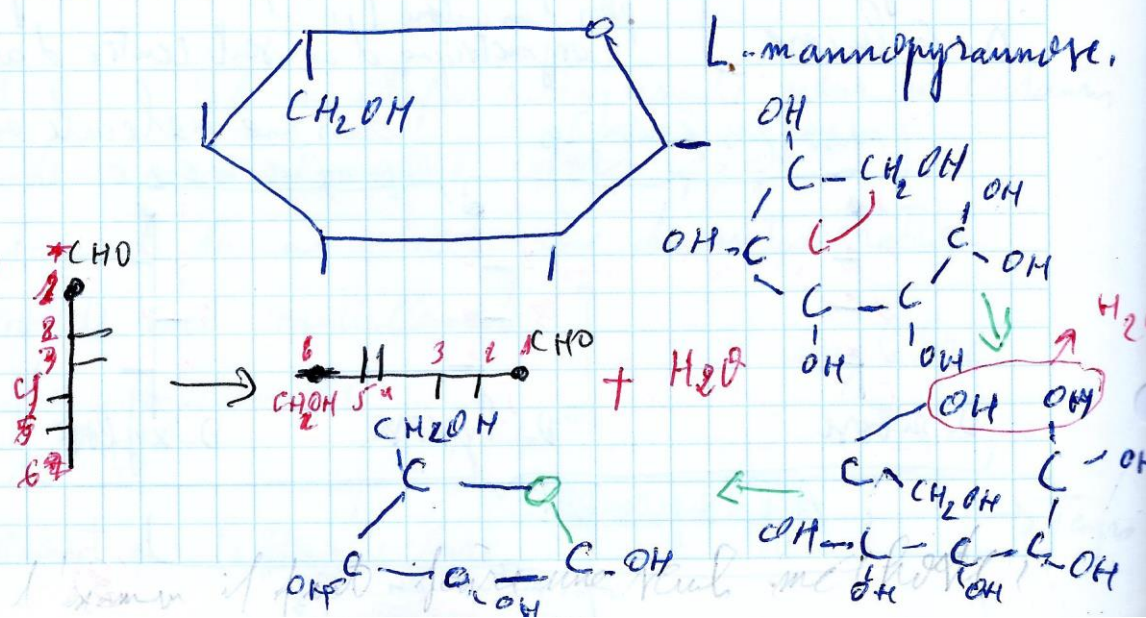 L-mannopyrannose.
CH2OH
OH
C - CH2OH
OH
OH - C
C
C
OH
C - C
OH
OH
*CHO
1
2
3
4
5
6
6
5
4
3
2
1
CHO
CH2OH
+ H2O
H2
OH
OH
CH2OH
C
O
C
C
C - OH
OH
OH
C
CH2OH
C - OH
OH - C - C - C - OH
OH
OH